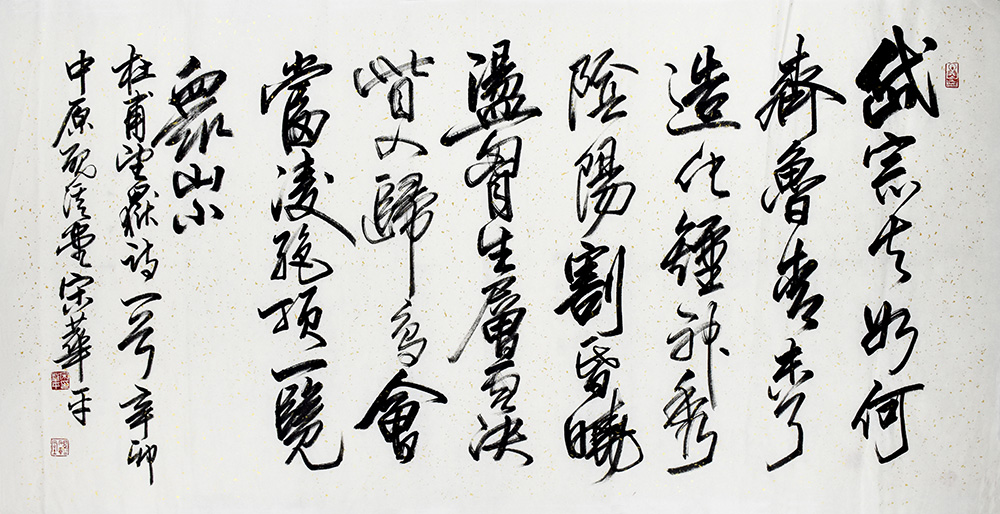 岱宗夫如何
齊魯青未了
造化鍾神秀
陰陽割昏曉
盪胷生層云決
眥入歸鳥會
當凌絕頂一覽
衆山小
杜甫望嶽詩一首辛卯
中原硯溪堂宋華平